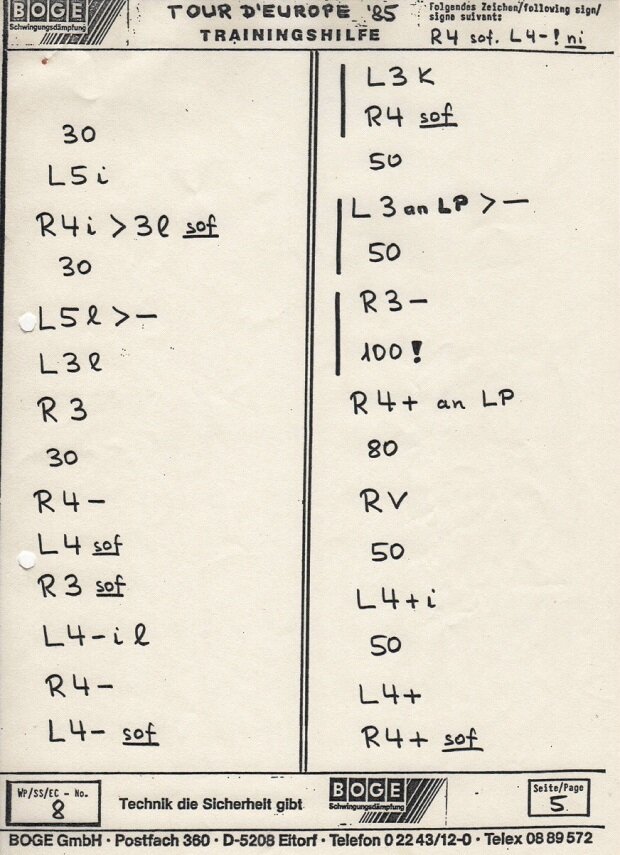 BOGE
Schwingungsdämpfung
TOUR D'EUROPE '85
TRAININGSHILFE
Folgendes Zeichen/following sign/
signe suivant:
R4 sof. L4-! ni
30
L5 i
R4 i > 3 l sof
30
L5 l > -
L3 l
R3
30
R4 -
L4 sof
R3 sof
L4 - i l
R4 -
L4 - sof
L3 K
R4 sof
50
L3 an LP > -
50
R3 -
100 !
R4 + an LP
80
RV
50
L4 + i
50
L4 +
R4 + sof
WP/SS/EC - No.
8
Technik die Sicherheit gibt
BOGE
Schwingungsdämpfung
Seite/Page
5
BOGE GmbH · Postfach 360 · D-5208 Eitorf · Telefon 0 22 43/12-0 · Telex 08 89 572